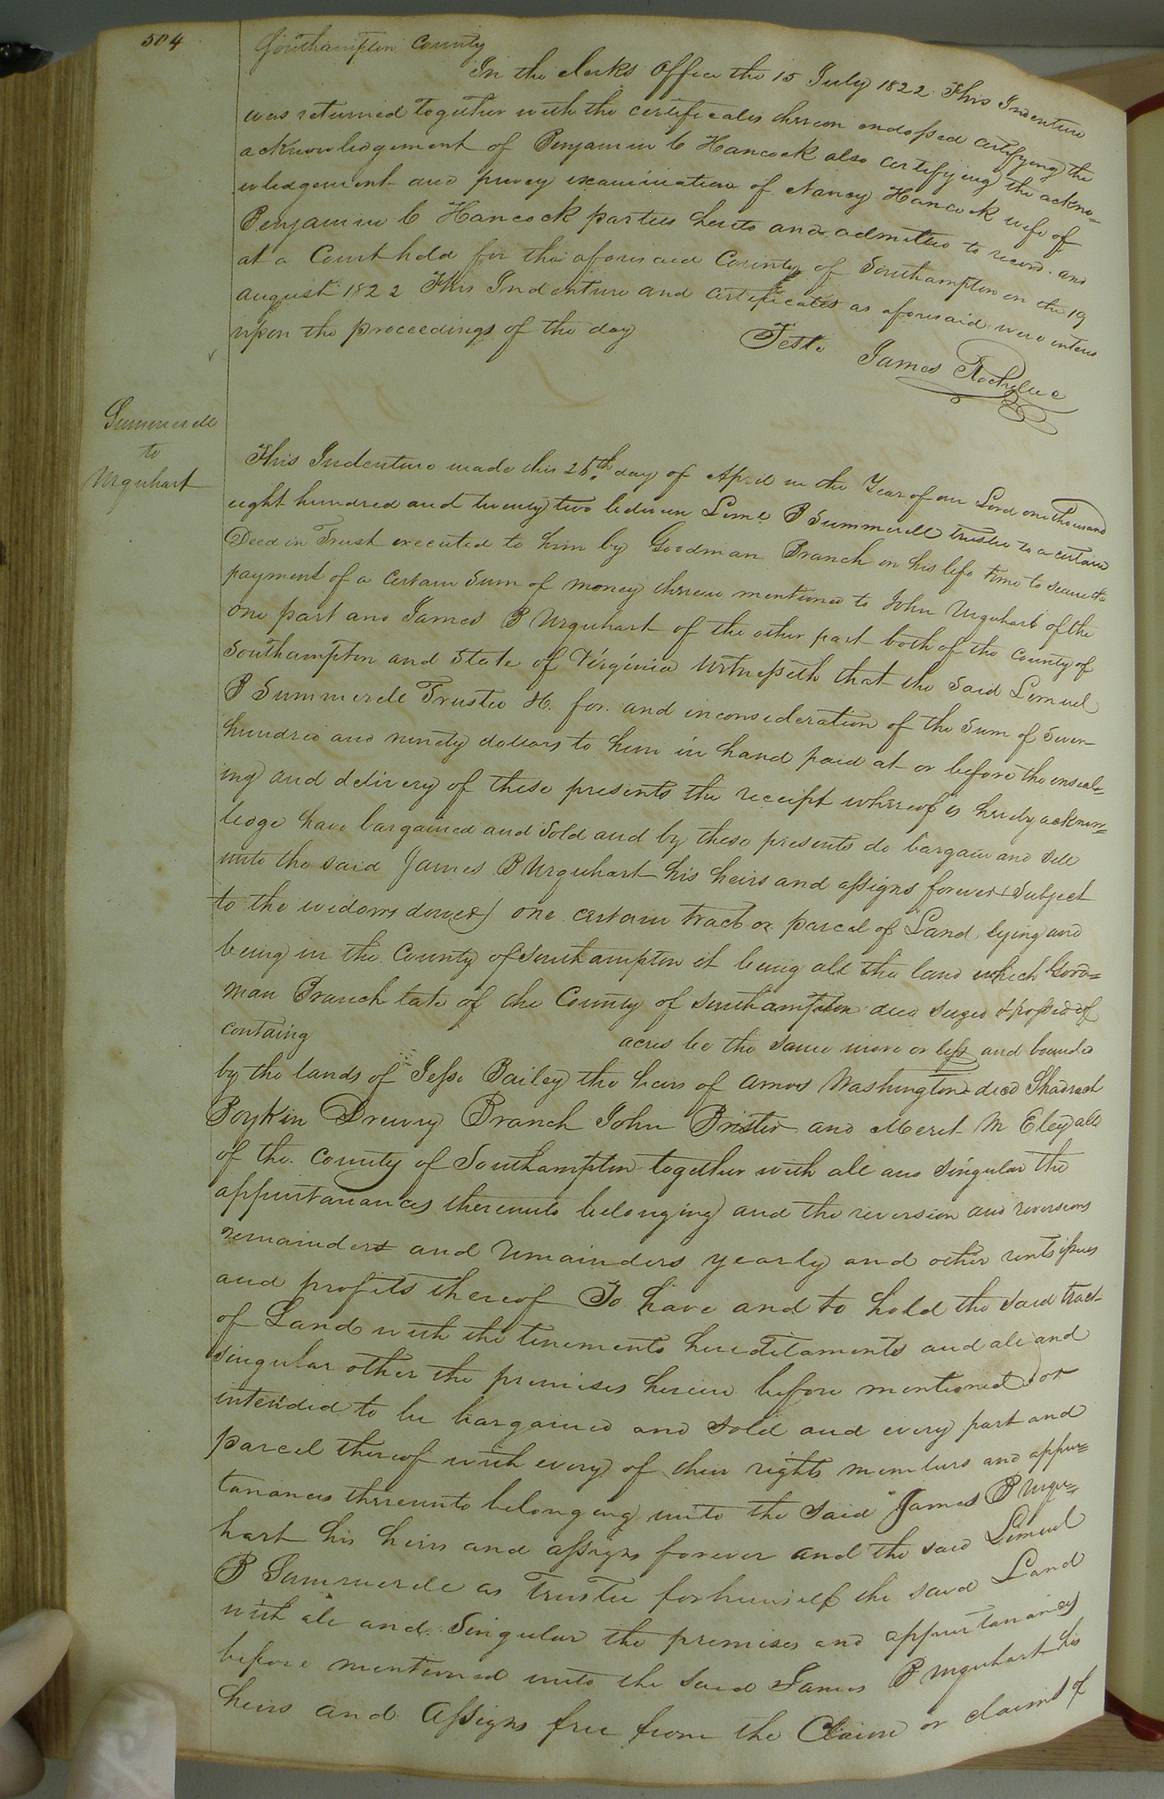 504
Southampton County
In the clerks Office the 15 July 1822. This Indenture
was returned together with the certificates thereon endorsed certifying the
acknowledgement of Benjamin C Hancock also certifying the ackno=
wledgement and privy examination of Nancy Hancock wife of
Benjamin C Hancock parties hereto and admitted to record. and
at a Court held for the aforesaid County of Southampton on the 19
august 1822 This Indenture and certificates as aforesaid were enterd
upon the proceedings of the day
Teste James Rochelle c
Summerell
to
Urquhart
This Indenture made this 25th day of April in the Year of our Lord one thousand
eight hundred and twenty two between Leml B Summerell trustee to a certain
Deed in Trust executed to him by Goodman Branch in his life time to secure the
payment of a certain Sum of money therein mentioned to John Urquhart of the
one part and James B Urquhart of the other part both of the County of
Southampton and State of Virginia Witnesseth that the Said Lemuel
B Summerell Trustee &c. for. and in consideration of the Sum of Seven
hundred and ninety dollars to him in hand paid at or before the enseal=
ing and delivery of these presents the receipt whereof is hereby acknow=
ledge have bargained and Sold and by these presents do bargain and sell
unto the said James B Urquhart his heirs and assigns forever (Subject
to the widows dower) one certain tract or parcel of Land lying and
being in the County of Southampton it being all the land which Good=
man Branch late of the County of Southampton decd seized & possed of
containg acres be the same more or less and bounded
by the lands of Jesse Bailey the heirs of Amos Washington decd Shadrach
Boykin Drewry Branch John Brister and Merit M Eley all
of the County of Southampton together with all and singular the
appurtanances thereunto belonging and the reversion and reversions
remainders and remainders yearly and other rents issues
and profits thereof To have and to hold the said tract
of Land with the tenements hereditaments and all and
singular other the premises herein before mentioned or
intended to be bargained and Sold and every part and
parcel thereof with every of their rights members and appur=
tanances thereunto belonging unto the said James B Urqu=
hart his heirs and assigns forever and the said Lemuel
B Summerell as Trustee for himself the said Land
with all and Singular the premises and appurtanances
before mentioned unto the said James B Urquhart his
heirs and Assigns free from the Claim or claims of